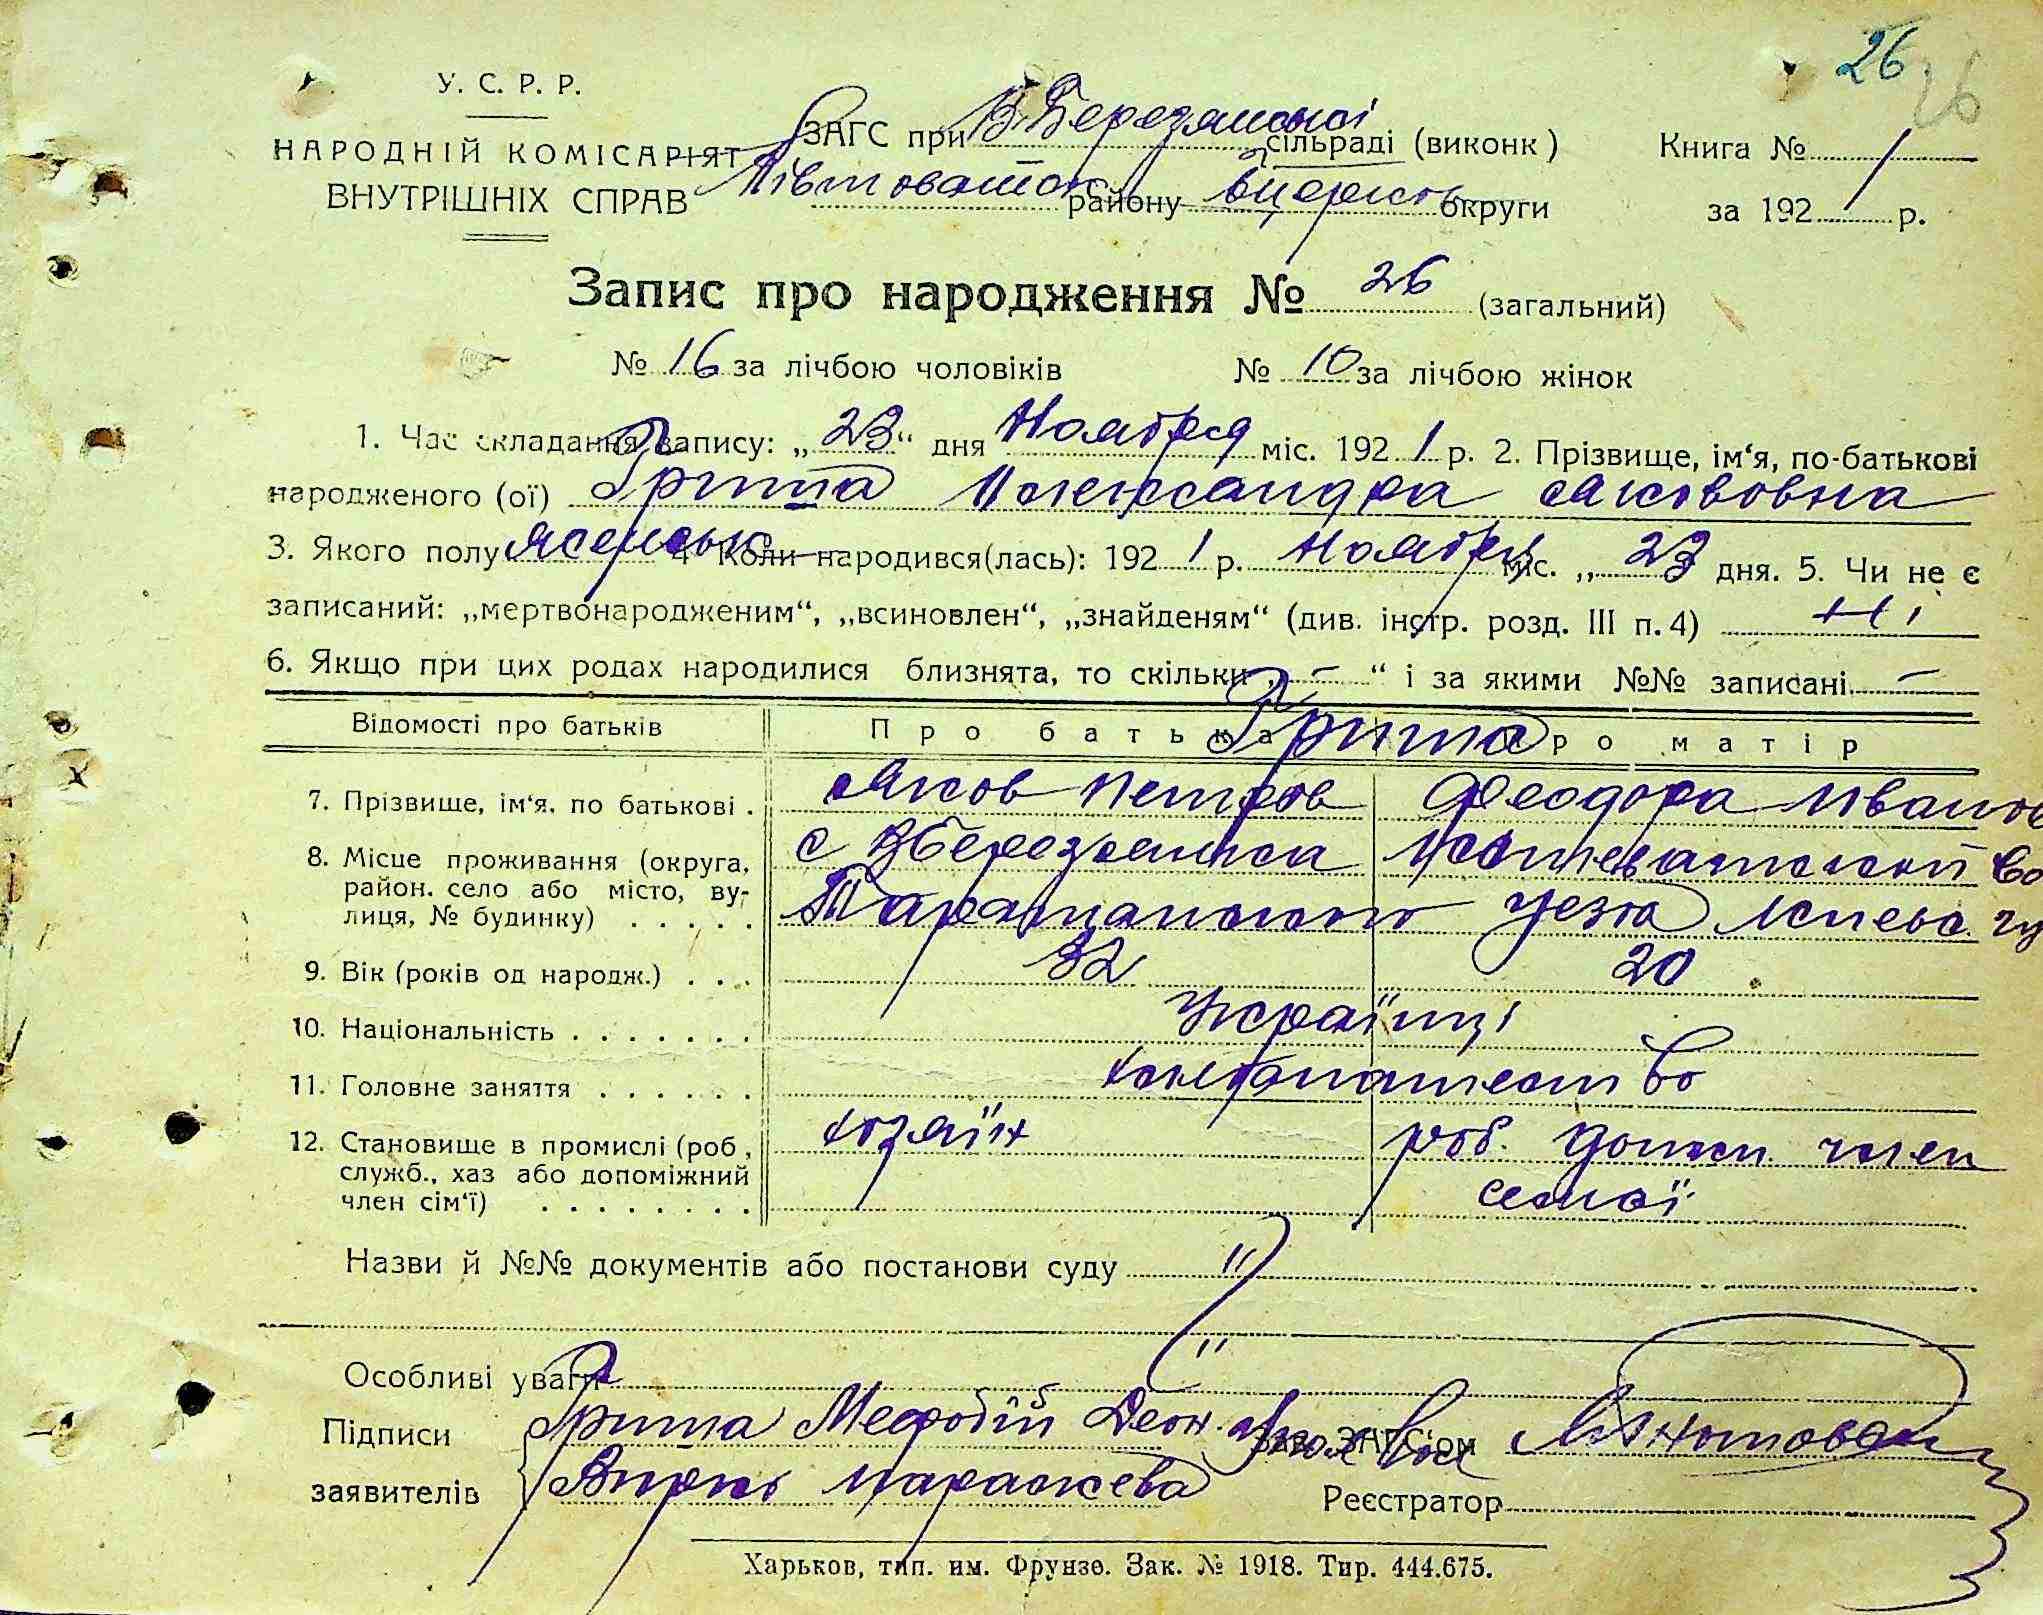 26 26
У. С. Р. Р.
НАРОДНІЙ КОМІСАРІЯТ
ВНУТРІШНІХ СПРАВ
ЗАГС при В. Березянської сільраді (виконк)
району Бцерков округи
Книга № 1
за 192 1 р.
Запис про народження № 26 (загальний)
№ 16 за лічбою чоловіків № 10 за лічбою жінок
1. Час складання запису: „23“ дня Ноября міс. 192 1 р. 2. Прізвище, ім‘я, по-батькові
народженого (ої) Грита Александра Якововна
3. Якого полу женськ 4 Коли народився(лась): 192 1 р. Ноября міс. „23 дня. 5. Чи не є
записаний: „мертвонародженим“, „всиновлен“, „знайденям“ (див. інстр. розд. III п. 4) Ні
6. Якщо при цих родах народилися близнята, то скільки „ – “ і за якими №№ записані –
Відомості про батьків Про батька Про матір
Грита
7. Прізвище, ім‘я, по батькові . Яков Петров Феодора Иванов
8. Місце проживання (округа, район. село або місто, вулиця, № будинку) . . . . .
с ВБерезянка
Таращанского уезда Киевс. гу
9. Вік (років од народж.) . . . 32 20
10. Національність . . . . . . . Українці
11. Головне заняття . . . . . . хлібопашество
12. Становище в промислі (роб, служб., хаз або допоміжний член сім‘ї) . . . . . . . .
хозяїн роб. допом. член
семьї
Назви й №№ документів або постанови суду "
Особливі уваги "
Підписи
заявителів
Грита Мефодій
Зав. ЗАГС‘ом
Реєстратор
Харьков, тип. им. Фрунзе. Зак. № 1918. Тир. 444.675.